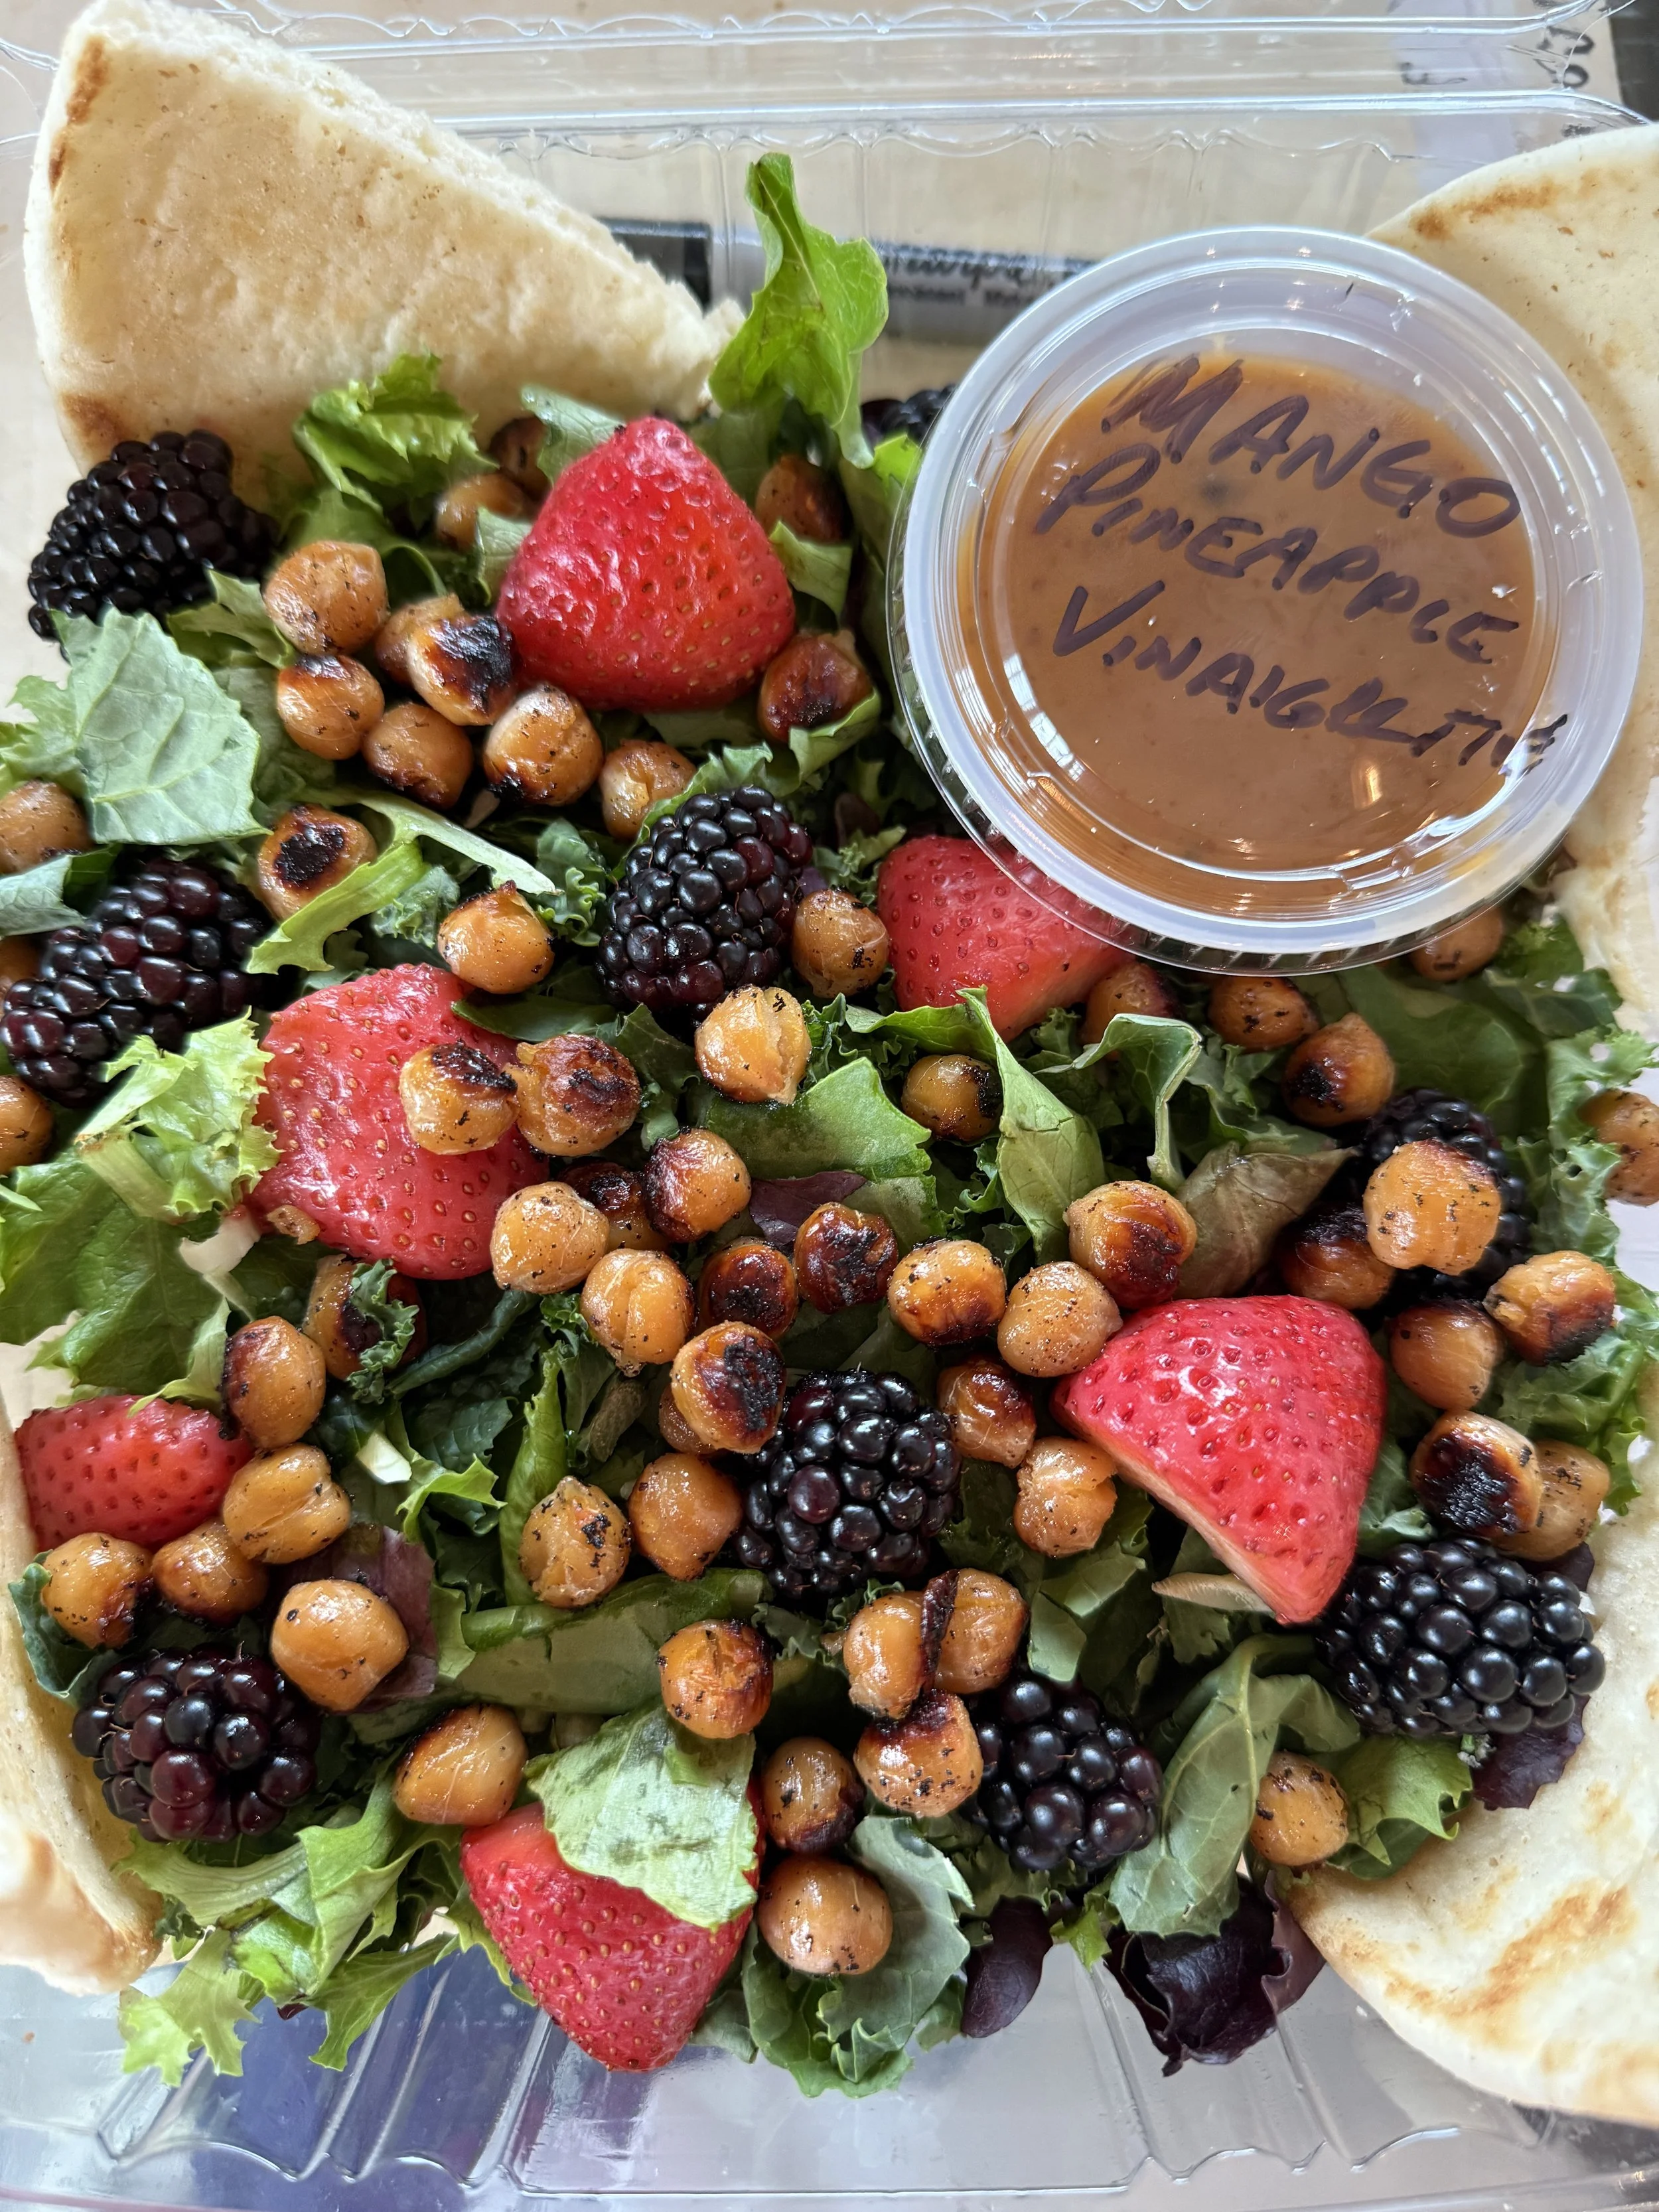 MANGO
PINEAPPLE
VINAIGRETTE